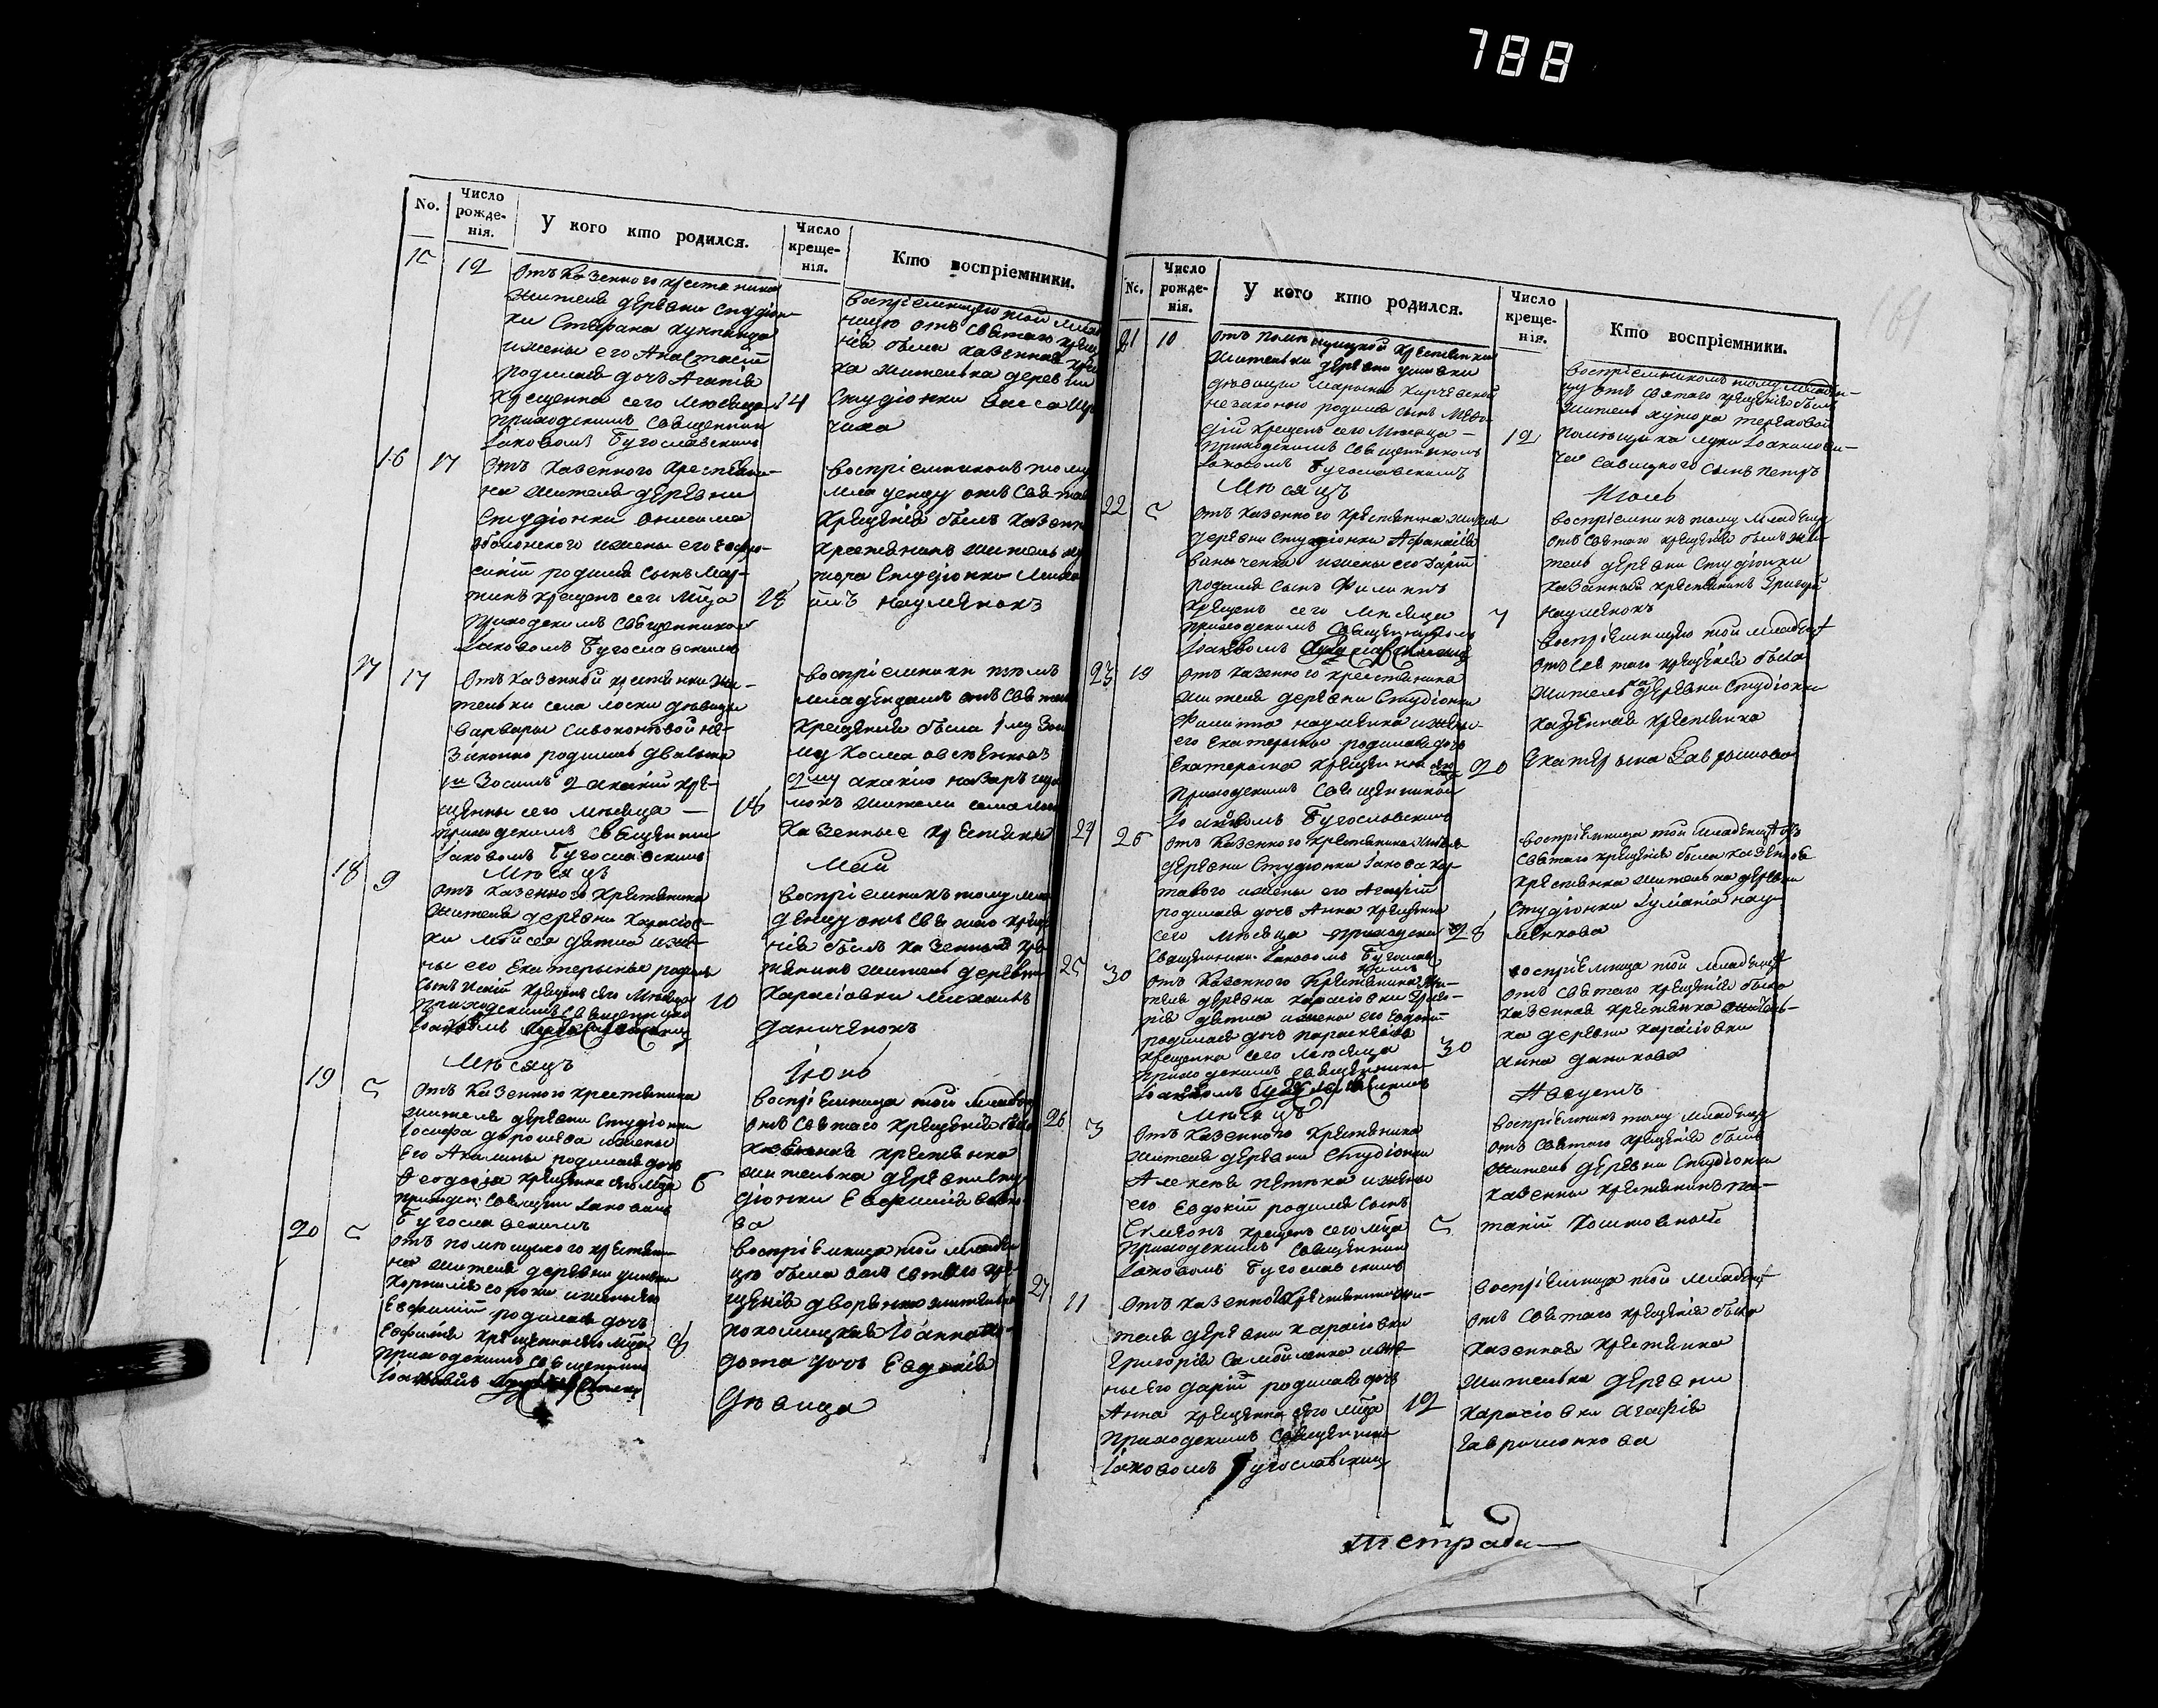 788
No.
Число рожде-нія.
У кого кто родился.
Число креще-нія.
Кто воспріемники.
15 12
Отъ казенного крестянина
жителя деревни Студіон-
ки Стефана
и жены его Анастасіи
родилася дочь Агапія
крещенна сего месяца 14
приходскимъ священник
Іаковомъ Бугославскимъ
воспріемницею той млад
ницю отъ святаго креще
нія была казенная крес
ка жителька деревни
Студіонки Васса
чиха
16 17
Отъ казенного крестяни-
на жителя деревни
Студіонки Онисима
Оболонского и жены его
родился сынъ Мар-
тинъ крещенъ сего мца 28
приходскимъ священником
Іаковомъ Бугославскимъ
воспріемникомъ тому
младенцу отъ свята
крещенія былъ казенн
крестянинъ житель ху
тора Студіонки Миха
илъ Науменокъ
17 17
Отъ казенной крестянки жи-
тельки села Лоски девицы
Варвары Сивоконевой не-
законно родились два сына
1й Зосимъ 2 Акакій кре-
щенны сего месяца — 18
приходскимъ священни
Іаковомъ Бугославскимъ
воспріемники тотмъ
младенцамъ отъ свята
крещенія были 1му Зоси
му Косма Овсіенковъ
2му Акакію Назаръ
жители села Лос
казенные крестяни
Месяцъ Май
18 9
Отъ казенного крестянина
жителя деревни Карасіов-
ки Моисея Дятла и же-
ны его Екатерины родился
сынъ крещенъ сего месяца 10
приходскимъ священнико
Іаковомъ
воспріемникъ тому мла
денцу отъ святаго креще
нія былъ казенный кре
стянинъ житель деревни
Карасіовки Михаилъ
Даниченокъ
Месяцъ Іюнь
19 5
Отъ казенного крестянина
жителя деревни Студіонки
Іосифа Дорошева и жены
его Акилины родилася дочь
Феодосія крещенна сего мца 6
приходск: священ Іаковомъ
Бугославскимъ
воспріемница той младен
отъ святаго крещенія была
казенная крестянка
жителька деревни Сту
діонки Евфимія
ва
20 5
Отъ помещицкого крестяни-
на жителя деревни
Корнилія Сороки и жены его
Евфиміи родилася дочь
Евфимія крещенна сего мца 8
приходскимъ священником
Іаковомъ
воспріемница той младен
цю была отъ святаго кре
щенія дворянка жителька
Іоанна
дота дочь Евдокія
девица
No.
Число рожде-нія.
У кого кто родился.
Число креще-нія.
Кто воспріемники.
161
21 10
отъ помещицкой крестянки
жительки деревни
девицы Марыны Харчевской
незаконно родился сынъ Мефо
дій крещенъ сего месяца — 12
приходскимъ священникомъ
Іаковомъ Бугославскимъ
воспріемникомъ тому младен-
цу отъ святаго крещенія былъ
житель хутора
помещика Луки Іоакимови-
ча Савицкого сынъ Петръ
Месяцъ Июль
22 5
отъ казенного крестянина жителя
деревни Студіонки Афанасія
и жены его Даріи
родился сынъ Филиппъ
крещенъ сего месяца 7
приходскимъ священникомъ
Іаковомъ
воспріемникъ тому младенцу
отъ святаго крещенія былъ жи-
тель деревни Студіонки
казенный крестянинъ Григорій
Науменокъ
23 19
отъ казенного крестянина
жителя деревни Студіонки
Филиппа Науменка и жены
его Екатерины родилася дочь
Екатерина крещенна 20
приходскимъ священником
Іаковомъ Бугославскимъ
воспріемницею той младенц
отъ святаго крещенія была
жителька деревни Студіонки
казенная крестянка
Екатерина Гаврышова
24 26
отъ казенного крестянина жителя
деревни Студіонки Іакова Кар-
тавого и жены его Агафіи
родилася дочь Анна крещенна
сего месяца приходски 28
священник Іаковомъ Бугослав
скимъ
воспріемница той младенц отъ
святаго крещенія была казенная
крестянка жителька деревни
Студіонки Іуліанія Нау-
менкова
25 30
отъ казенного крестянина жи-
теля деревни Карасіовки Григо-
рія Дятла и жены его Евдокіи
родилася дочь Параскевія
крещенна сего месяца 30
приходскимъ священнико
Іаковомъ
воспріемница той младенц
отъ святаго крещенія была
казенная крестянка житель-
ка деревни Карасіовки
Анна Данчкова
Месяцъ Августъ
26 3
отъ казенного крестянина
жителя деревни Студіонки
Алексея Петька и жены
его Евдокіи родился сынъ
Симеонъ крещенъ сего мца 5
приходскимъ священник
Іаковомъ Бугославскимъ
воспріемникъ тому младенцу
отъ святаго крещенія былъ
житель деревни Студіонки
казенны крестянинъ По-
тапій
27 11
отъ казенного крестянина жи-
теля деревни Карасіовки
Григорія Самойленка и же-
ны его Даріи родилася дочь
Анна крещенна сего мца 12
приходскимъ священник
Іаковомъ Бугославским
воспріемница той младенц
отъ святаго крещенія была
казенная крестянка
жителька деревни
Карасіовки Агафія
Гаврышонкова
тетради